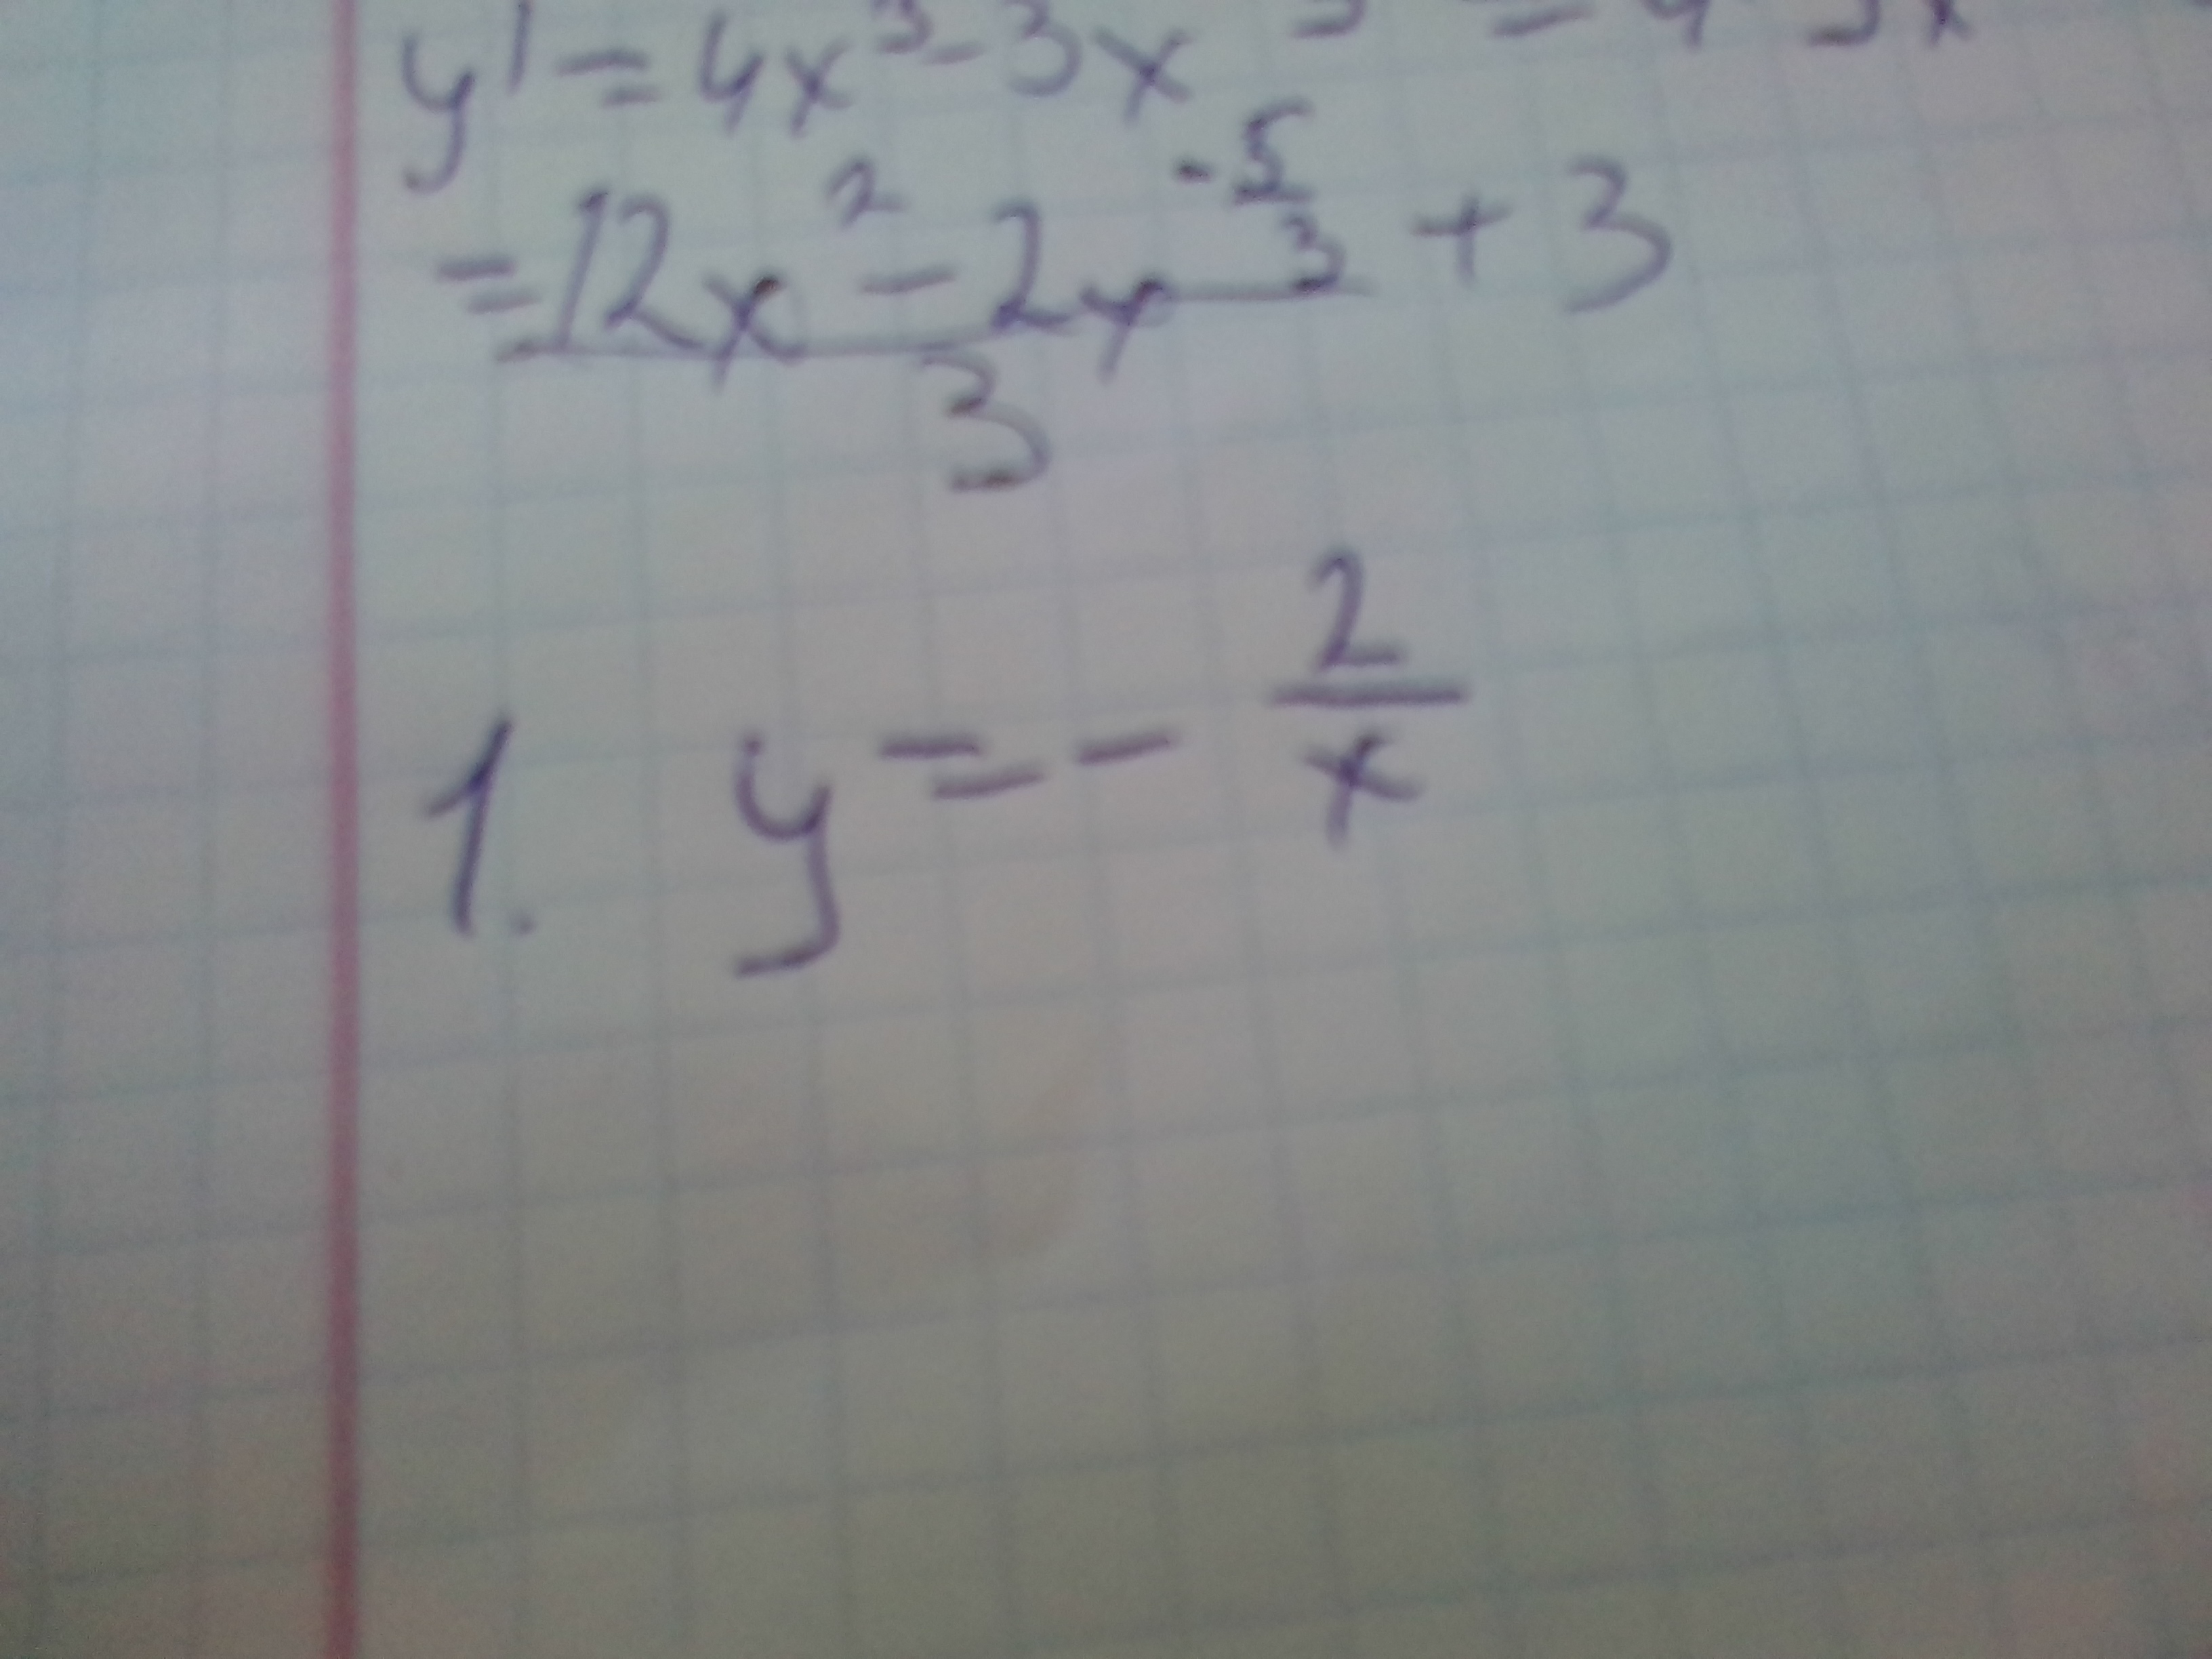 y' = 4x³ - 3x
= 12x² - 2x^(-5/3) + 3
3
1. y = - 2/x